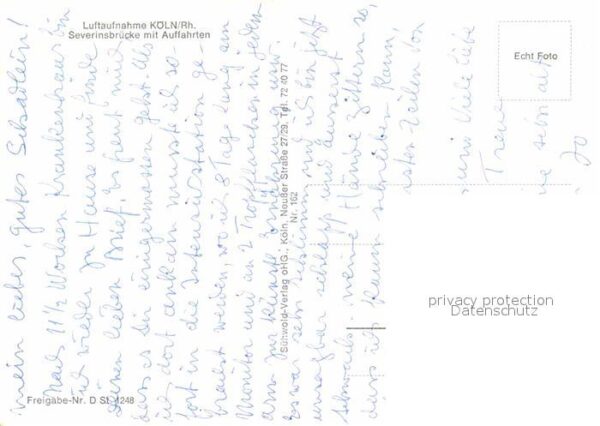 Luftaufnahme KÖLN/Rh.
Severinsbrücke mit Auffahrten
Echt Foto
mein lieber, gutes Elsadlein!
Nach 11 1/2 Wochen Krankenhaus bin
ich wieder zu Hause und finde
Deinen lieben Brief. Es freut mich
dass es Dir einigermassen geht. Als
ich dort ankam musste ich so-
fort in die Intensivstation ge-
bracht werden, wo ich 8 Tage lang am
Monitor und an 2 Tropfflaschen in jedem
Arm zur künstl. Ernährung
Es war sehr schlimm und ich bin jetzt
unsagbar schlapp und äusserst
schwach. meine Hände zittern so,
dass ich kaum schreiben kann,
Zeilen von
viele liebe
Treue
sehr alt
Jo
Sühwold-Verlag oHG., Köln, Neußer Straße 27/29, Tel. 72 40 77
Nr. 162
privacy protection
Datenschutz
Freigabe-Nr. D St 1248